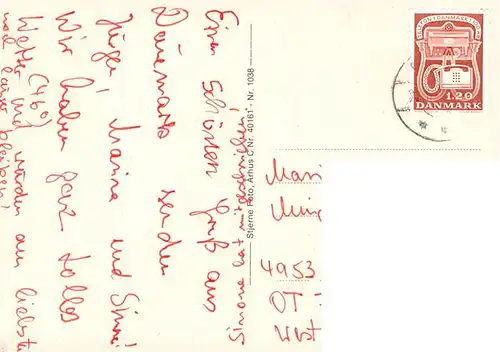 Einen schönen Gruß aus
Dänemark senden
Jürgen, Marina und Simone!
Wir haben ganz tolles
Wetter (46°) und würden am liebsten
noch länger bleiben!
Simone hat mitgeschrieben!
Stjerne Foto, Århus C Nr. 40161 - Nr. 1038
TELEFON I DANMARK
1.20
DANMARK
Mari
Ming
4953
OT
West